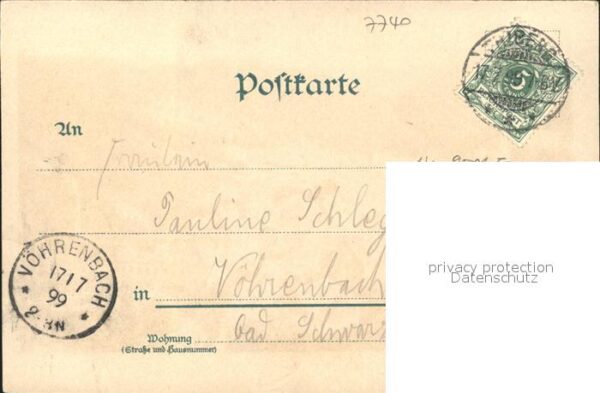 7740
5
Postkarte
An
Fräulein
Pauline Schleg
privacy protection
Datenschutz
VÖHRENBACH
17/7
99
2-3N
in Vöhrenbach
Wohnung bad Schwarz
(Straße und Hausnummer)